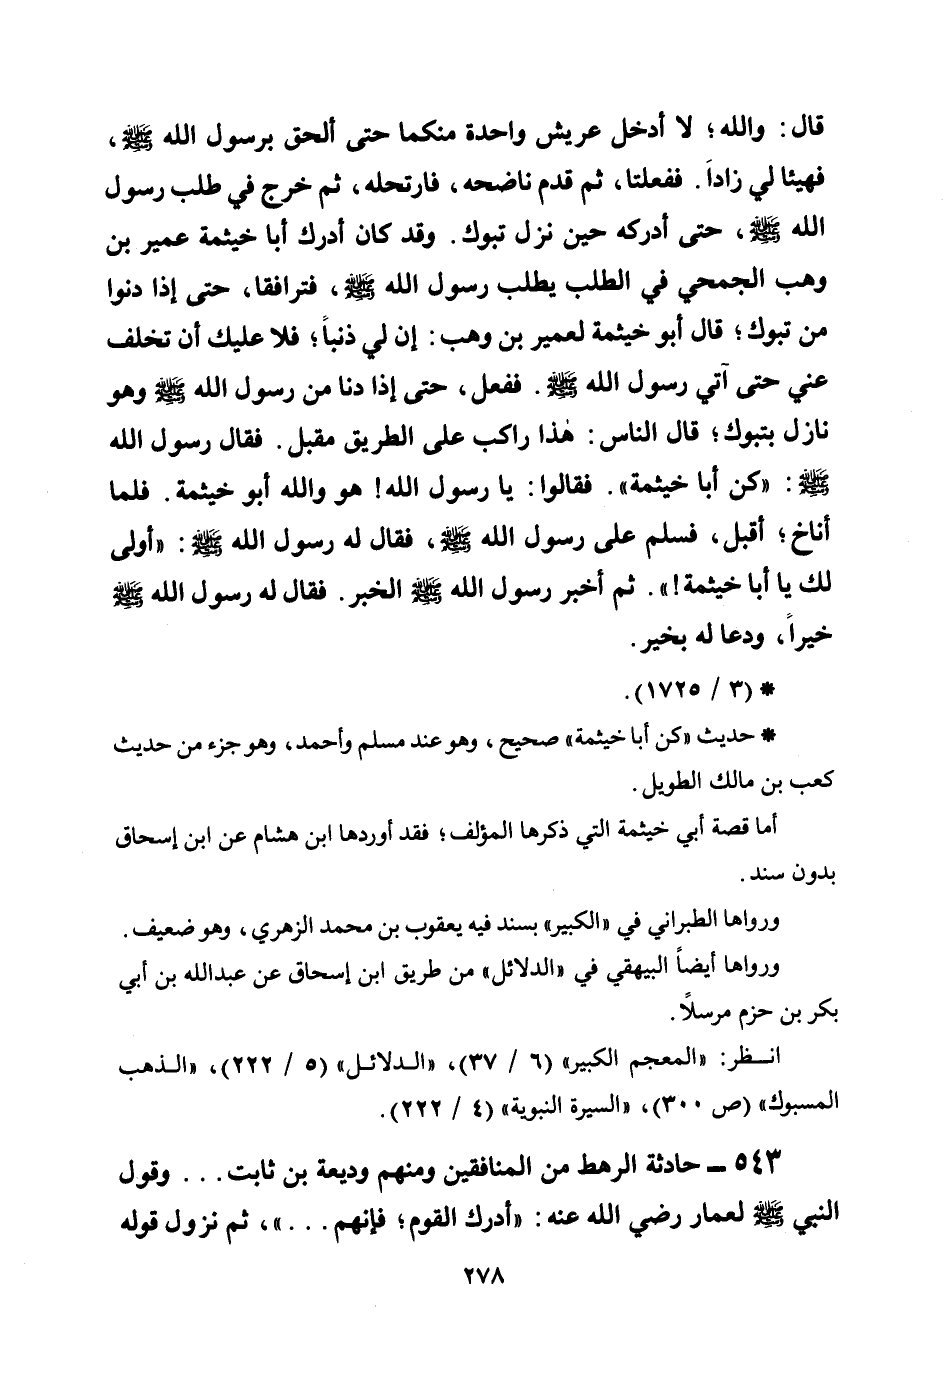 قال: والله؛ لا أدخل عريش واحدة منكما حتى ألحق برسول الله ﷺ،
فهيئا لي زاداً. ففعلتا، ثم قدم ناضحه، فارتحله، ثم خرج في طلب رسول
الله ﷺ، حتى أدركه حين نزل تبوك. وقد كان أدرك أبا خيثمة عمير بن
وهب الجمحي في الطلب يطلب رسول الله ﷺ، فترافقا، حتى إذا دنوا
من تبوك؛ قال أبو خيثمة لعمير بن وهب: إن لي ذنباً؛ فلا عليك أن تخلف
عني حتى آتي رسول الله ﷺ. ففعل، حتى إذا دنا من رسول الله ﷺ وهو
نازل بتبوك؛ قال الناس: هٰذا راكب على الطريق مقبل. فقال رسول الله
ﷺ: «كن أبا خيثمة». فقالوا: يا رسول الله! هو والله أبو خيثمة. فلما
أناخ؛ أقبل، فسلم على رسول الله ﷺ، فقال له رسول الله ﷺ: «أولى
لك يا أبا خيثمة!». ثم أخبر رسول الله ﷺ الخبر. فقال له رسول الله ﷺ
خيراً، ودعا له بخير.
* (٣ / ١٧٢٥).
* حديث «كن أبا خيثمة» صحيح، وهو عند مسلم وأحمد، وهو جزء من حديث
كعب بن مالك الطويل.
أما قصة أبي خيثمة التي ذكرها المؤلف؛ فقد أوردها ابن هشام عن ابن إسحاق
بدون سند.
ورواها الطبراني في «الكبير» بسند فيه يعقوب بن محمد الزهري، وهو ضعيف.
ورواها أيضاً البيهقي في «الدلائل» من طريق ابن إسحاق عن عبدالله بن أبي
بكر بن حزم مرسلاً.
انـظر: «المعجم الكبير» (٦ / ٣٧)، «الـدلائـل» (٥ / ٢٢٢)، «الـذهب
المسبوك» (ص ٣٠٠)، «السيرة النبوية» (٤ / ٢٢٢).
٥٤٣ ــ حادثة الرهط من المنافقين ومنهم وديعة بن ثابت... وقول
النبي ﷺ لعمار رضي الله عنه: «أدرك القوم؛ فإنهم...»، ثم نزول قوله
٢٧٨